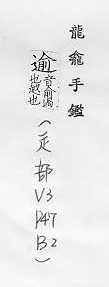 龍龕手鑑
逾
音俞過
也越也
(辵部 V3 P47 B2)